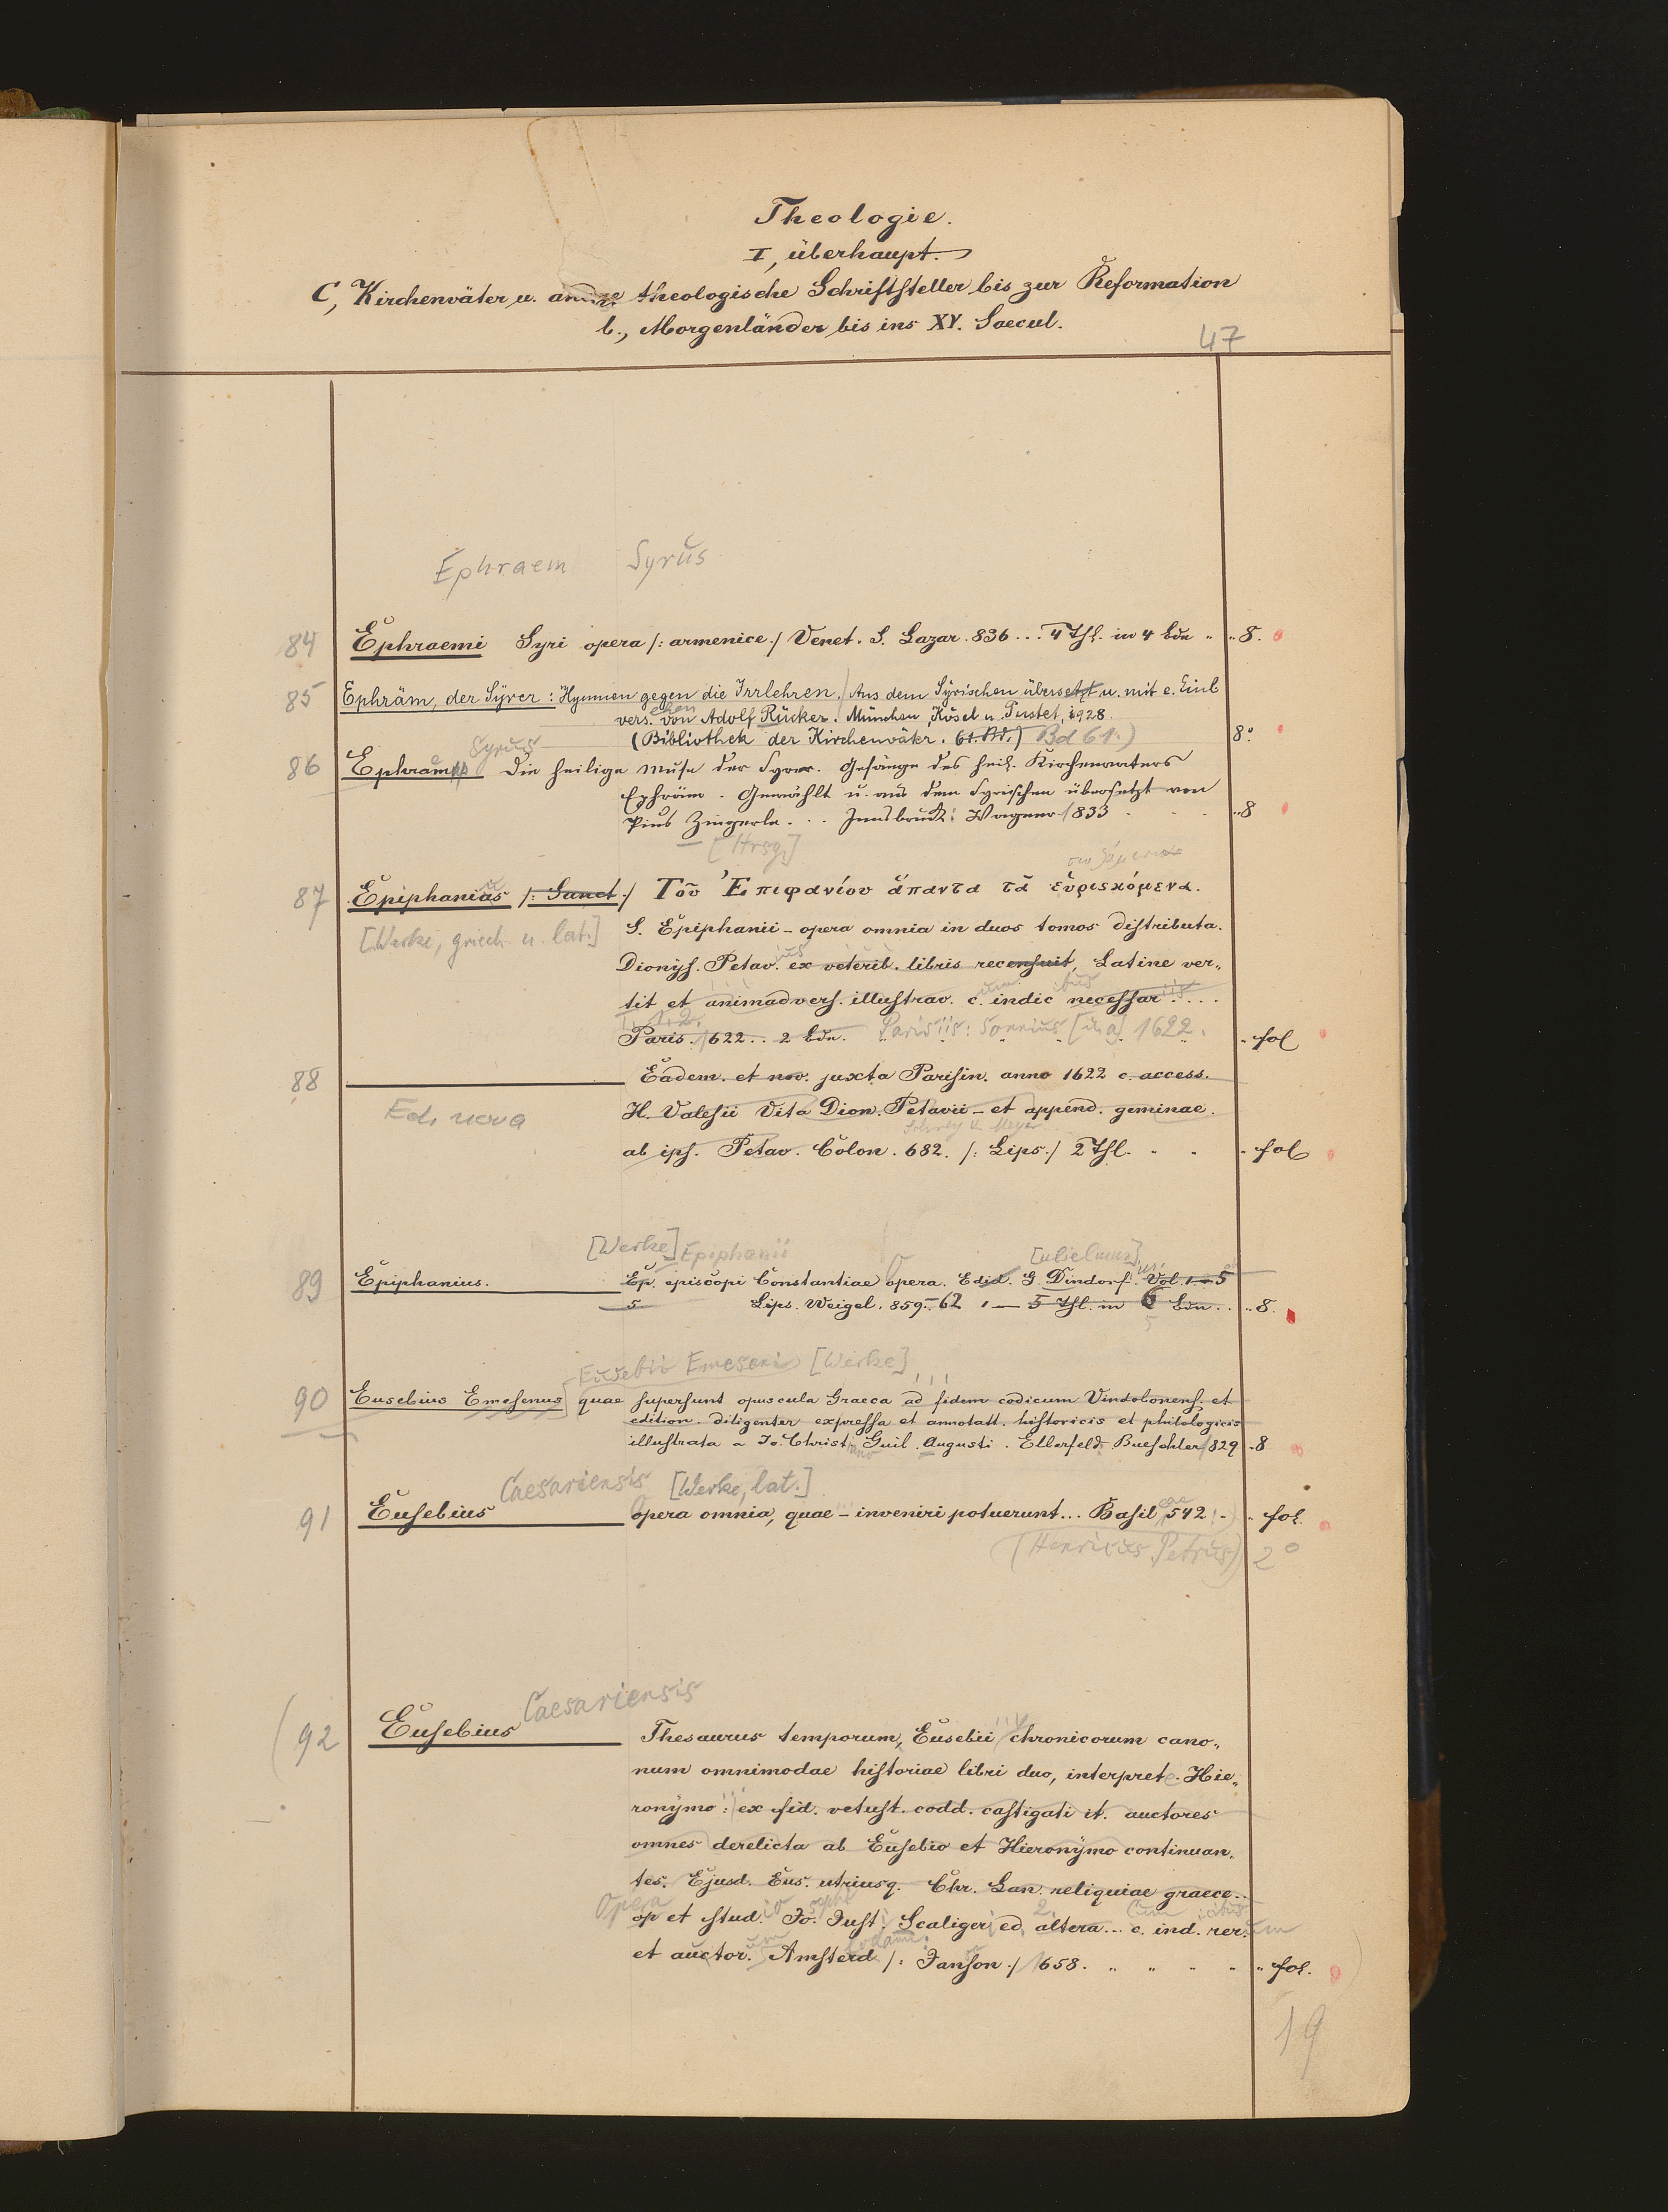 Theologie.
I, überhaupt.
C, Kirchenväter u. andre theologische Schriftsteller bis zur Reformation
b., Morgenländer bis ins XV. Saecul.
47
Ephraem Syrus
84 Ephraemi Syri opera /: armenice ./ Venet. S. Lazar. 836 ... 4 Thl. in 4 Bdn „ „ 8.
85 Ephräm, der Syrer: Hymnen gegen die Irrlehren. / Aus dem Syrischen übersetzt u. mit e. Einl
vers. ehen von Adolf Rücker. München, Kösel u. Pustet, 1928.
(Bibliothek der Kirchenväter. 61. Bd.) Bd 61.) 8°
Syrus
86 Ephraem Die heilige Muse der Syrer. Gesänge des heil. Kirchenvaters
Ephräm. Gewählt u. aus dem Syrischen übersetzt von
Pius Zingerle ... Innsbruck: Wagner 1833 . . . „ 8
[Hrsg.]
87 Epiphanius /: Sanct ./ Τοῦ Ἐπιφανίου ἅπαντα τὰ εὑρισκόμενα.
[Werke, griech. u. lat.] S. Epiphanii – opera omnia in duos tomos distributa.
Dionys. Petav. ius ex veterib. libris recensuit, Latine ver„
tit et animadvers. illustrav. c. um indic ibus necessar iis ....
1. 2.
Paris. 1622 .. 2 Bdn. Parisiis: Sonnius [u. a.] 1622. „ fol
88 Eadem. et nov. juxta Parisin. anno 1622 c. access.
Ed. nova H. Valesii Vita Dion. Petavii – et append. geminae.
ab ips. Petav. Colon. 682. /: Lips ./ 2 Thl. „ „ „ fol
[Werke] Epiphanii
89 Epiphanius. Ep. episcopi Constantiae opera. Edid. G. Dindorf. Vol. 1 – 5
5 Lips. Weigel. 859.–62 1 – 5 Thl. in 6 Bdn .. „ 8.
5
Eusebii Emeseni [Werke]
90 Eusebius Emesenus quae supersunt opuscula Graeca ad fidem codicum Vindobonens. et
edition. diligenter expressa et annotatt. historicis et philologicis
illustrata a Jo. Christi ano Guil. Augusti. Elberfeld: Bueschler 1829 „ 8
Caesariensis [Werke, lat.]
91 Eusebius opera omnia, quae – inveniri potuerunt ... Basil eae 542 . „ fol.
(Henricus Petrus) 2°
Caesariensis
92 Eusebius Thesaurus temporum, Eusebii chronicorum cano„
num omnimodae historiae libri duo, interprete. Hie„
ronymo: ex fid. vetust. codd. castigati it. auctores
omnes derelicta ab Eusebio et Hieronymo continuan„
tes. Ejusd. Eus. utriusq. Chr. Can. reliquiae graece ..
Opera
op et stud. io Jo. seph Just. i Scaliger i ed. 2. altera ... c. cum ind. icibus rer. um
et auctor. um Amsterd odami: /: Janson ./ 1658. „ „ „ „ „ fol.
19